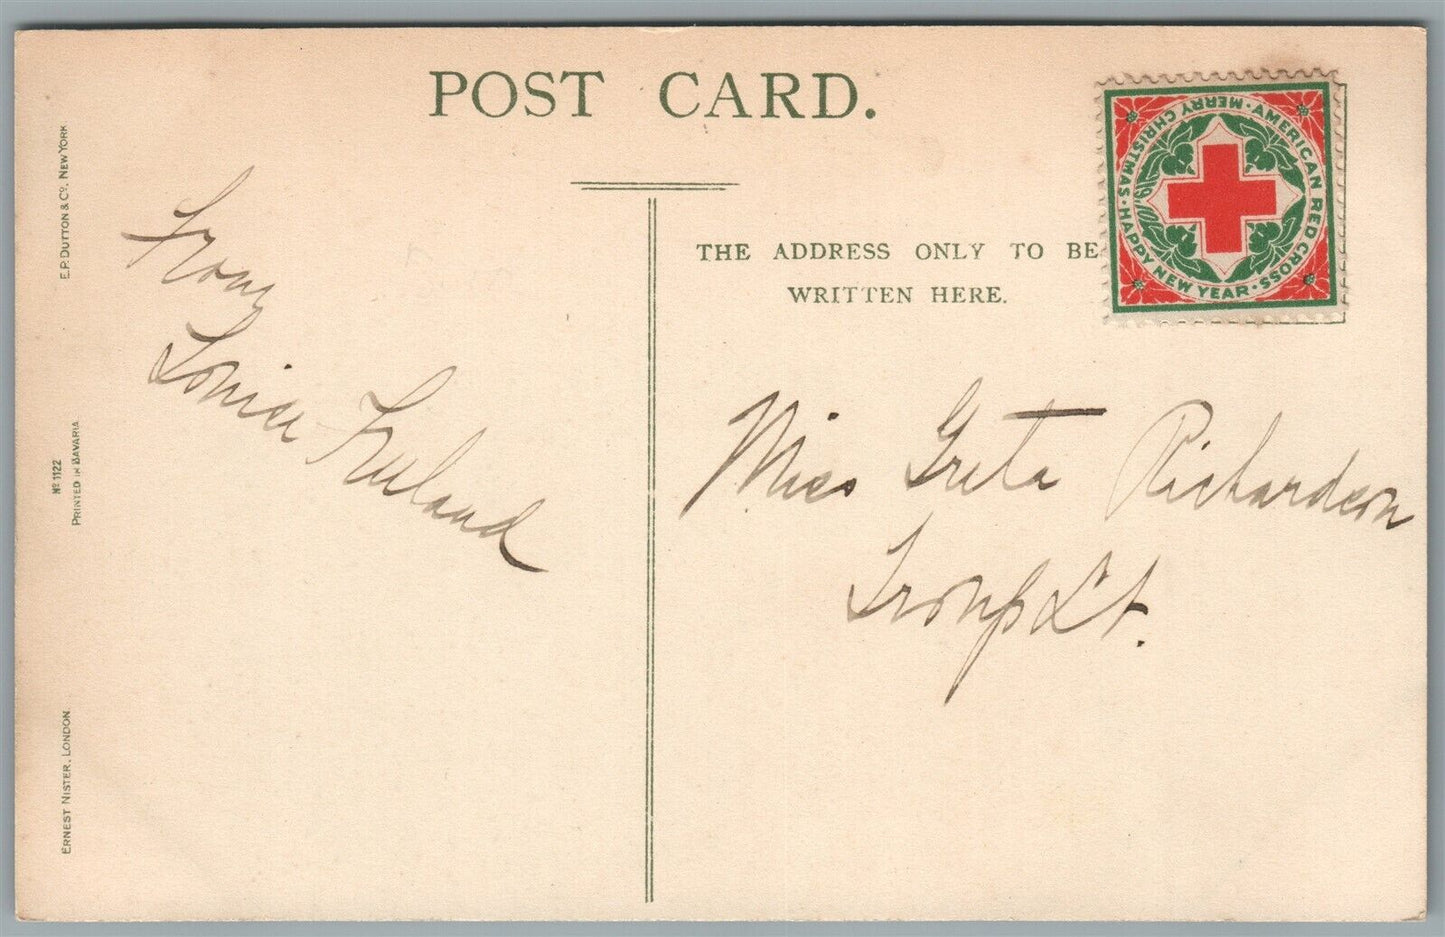 POST CARD.
E.P. DUTTON & Co. NEW YORK
No 1122
PRINTED IN BAVARIA
ERNEST NISTER, LONDON
From
Louise Freeland
THE ADDRESS ONLY TO BE
WRITTEN HERE.
AMERICAN RED CROSS · HAPPY NEW YEAR · MERRY CHRISTMAS ·
Miss Greta Richardson
Troup St.